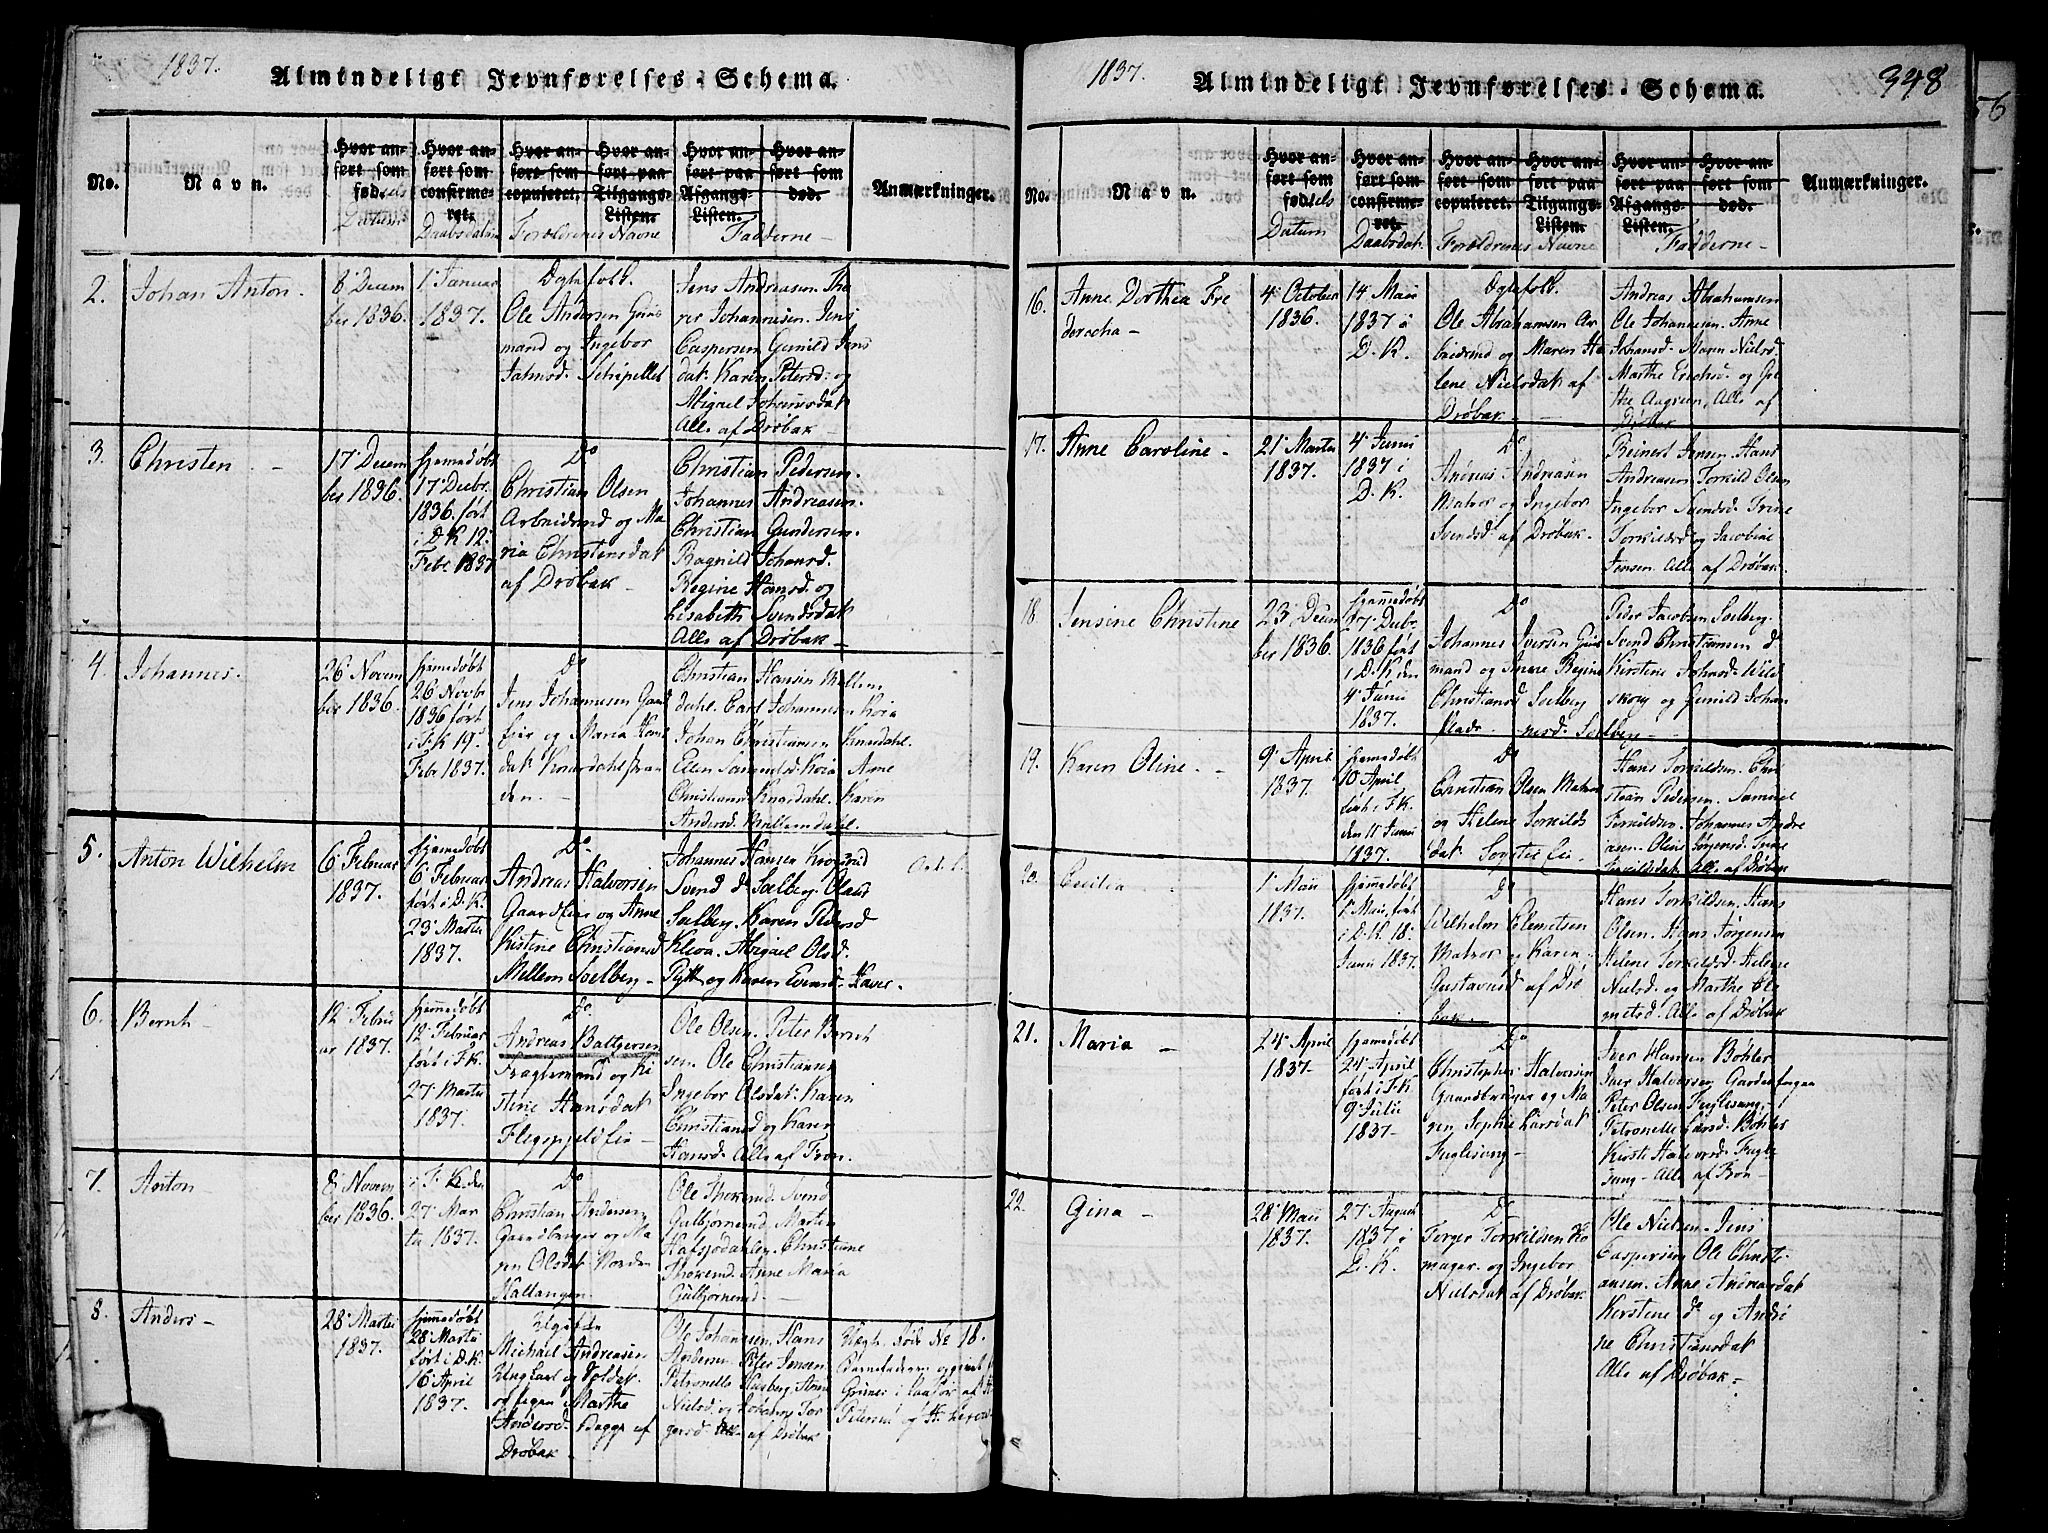 1837.
Almindeligt Jevnførelses-Schema.
No.
Navn.
Hvor anført som fødsels Datum
Hvor anført som confirmeret. Daabsdatum
Hvor anført som copuleret.
Hvor anført paa Tilgangs-Listen.
Forældrenes Navne
Hvor anført paa Afgangs-Listen.
Hvor anført som død.
Fadderne -
Anmærkninger.
2.
Johan Anton.
8de Decem
ber 1836.
1ste Januar
1837.
Ægtefolk.
Ole Andersen Huus
mand og Ingebor
Schipellet
Jens Andreasen. Tho
rer Johannesen. Jens
Caspersen, Gunild Jens
dat. Karen Petersd. og
Abigael Johannesdat
Alle af Drøbak -
3.
Christen -
17 Decem
ber 1836.
hjemedøbt
17 Decbr.
1836. ført
i D.K. 12
Febr 1837
Do
Christian Olsen
Arbeidsmd og Ma
ria Christensdat
af Drøbak -
Christian Pedersen.
Johannes Andreasen.
Christian Gundersen.
Ragnild Johansd.
Regine Hansd. og
Lisabeth Svendsdat
Alle af Drøbak -
4.
Johannes.
26 Novem
ber 1836.
hjemedøbt
26 Novbr
1836 ført
i F.K 19
Febr 1837.
Do
Jens Johannesen Gaa
eier og Maria Han
dat. Knardahlstran
den. -
Christian Hansen Mellem
dahl. Carl Johannesen Koia
Johan Christiansen Knardahl.
Ellen Samuelsd. Koia Anne
Christiansd Knardahl. Karen
Andersd. Mellemdahl.
5.
Anton Wilhelm
6 Februar
1837.
hjemedøbt
6 Februar
ført i D.K.
23 Martii
1837.
Do.
Andreas Halvorsen
Gaardeier og Anne
Kistine Christiansd
Mellem Solberg -
Johannes Hansen
Svend do Solberg. Olaus
Solberg. Karen Pedersd
Kleva. Abigael Olsd.
og Karen Evensd. Haver.
6.
Bernt -
12 Februar
ar 1837.
hjemmedøbt
12 Februar
ført i F.K.
27 Martii
1837.
Do.
Andreas Baltzersen
og Ki
stine Hansdat
Ole Olsen. Peter Bernt
sen. Ole Christianse
Ingebor Olsdat. Karen
Christiansd og Karen
Hansd. Alle af Fron.
7.
Anton -
8 Novem
ber 1836.
i F.K. den
27 Mar
tii 1837.
Do
Christian Andersen
Gaardbruger og Ma
ren Olsdat Norden
Hallangen
Ole
Gulbjørnrud. Morten
Christiane
Anne Maria
Gulbjørnrud -
8.
Anders -
28 Martii
1837.
hjemedøbt
28 Martii
ført i D.K.
16 April
1837.
Ugifte
Michael Andreasen
Ungkarl og Soldat.
og Pigen Marthe
Andersd. Bagge af
Drøbak.
Ole Johannesen. Hans
Andersen. Peter Jensen
Petronelle Anne
Nielsd. og Johanne Tor
gersd Alle af Drøbak
No 18.
Barnefaderen
1837.
Almindeligt Jevnførelses-Schema.
348
56
No.
Navn.
Hvor anført som fødsels Datum
Hvor anført som confirmeret. Daabsdat.
Hvor anført som copuleret.
Hvor anført paa Tilgangs-Listen.
Forældrenes Navne
Hvor anført paa Afgangs-Listen.
Hvor anført som død.
Fadderne -
Anmærkninger.
16.
Anne Dorthea Fre
dericha -
4 October
1836.
14 Maii
1837 i
D.K.
Ægtefolk.
Ole Abrahamsen Ar
beidsmd og Maren He
lene Nielsdat af
Drøbak -
Andreas Abrahamsen
Ole Johannesen. Anne
Johansd. Maren Nielsd.
Marthe Erichsd. og
Aagesen. Alle af
Drøbak
17.
Anne Caroline -
21 Martii
1837.
4 Junii
1837 i
D.K.
Do
Andreas Andreasen
Matros og Ingebor
Svendsd af Drøbak.
Reinert Jensen. Hans
Andreasen. Torkild Olsen
Ingebor Svendsd. Trine
Torkildsd og Jacobine
Jensen. Alle af Drøbak.
18.
Jensine Christine
23 Decem
ber 1836.
hjemmedøbt
27 Decbr.
1836 ført
i D.K den
4 Junii
1837.
Do
Johannes Iversen Huus
mand og Anne Regine
Christiansd Solberg
Plads.
Peder Jacobsen Solberg.
Svend Christiansen do
Kirstine Johansd. Wild
skoug og Gunild Johan
nesd. Solberg -
19.
Karen Oline. -
9 April
1837.
hjemedøbt
10 April
ført i F.K.
den 11 Junii
1837.
Do
Christian Olsen Matros
og Helene Torkilds
dat
Hans Torkildsen. Chri
stian Pedersen. Samuel
Torkildsen. Johannes Andre
asen. Oline Trine
Torkildsdat. Alle af Drøbak
20.
Cecilia
1 Maii
1837.
hjemmedøbt
1 Maii, ført
i D.K. 18
Junii 1837.
Do
Wilhelm Clemetsen
Matros og Karen
Gustavusd af Drø
bak -
Hans Torkildsen. Hans
Olsen. Hans Jørgensen
Helene Torkildsd. Helene
Nielsd. og Marthe Cle
metsd. Alle af Drøbak
21.
Maria -
24 April
1837.
hjemedøbt
24 April
ført i F.K
9 Julii
1837 -
Do
Christopher Halvorsen
Gaardbruger og Ma
ren Sophie Larsdat
Fuglesang -
Iver Hansen Bøhler
Iver Halvorsen
Peter Olsen Fuglesang. -
Petronelle Larsd. Bøhler
Kirsti Halvorsd. Fugle
sang - Alle af Fron -
22.
Gina -
28 Maii
1837.
27 August
1837 i
D.K.
Do
Torger Torkildsen Sko
mager. og Ingebor
Nielsdat af Drøbak
Ole Nielsen. Jens
Caspersen Ole Christi
ansen. Anne Andreasdat
Kirstine do og Andri
ne Christiansdat
Alle af Drøbak -